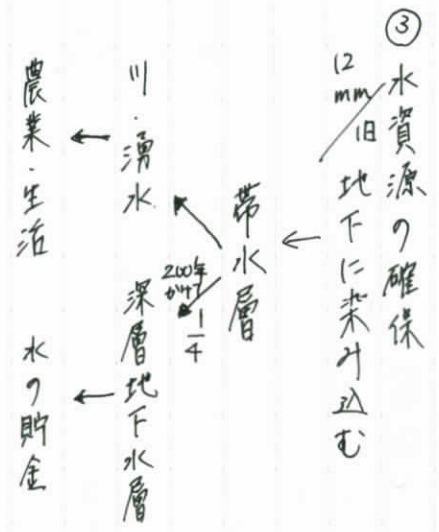 ③
水資源の確保
12mm/日 地下に染み込む
帯水層
200年かけて
1/4
川・湧水
深層地下水層
農業・生活
水の貯金